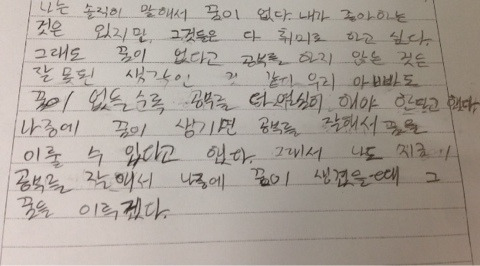 나는 솔직히 말해서 꿈이 없다. 내가 좋아하는
것은 있지만, 그것들은 다 취미로 하고 싶다.
그래도 꿈이 없다고 공부를 하지 않는 것은
잘못된 생각인 것 같다. 우리 아빠도
꿈이 없을수록 공부를 더 열심히 해야 한다고 했다.
나중에 꿈이 생기면 공부를 잘해서 꿈을
이룰 수 있다고 했다. 그래서 나도
공부를 잘해서 나중에 꿈이 생겼을 때 그
꿈을 이루겠다.